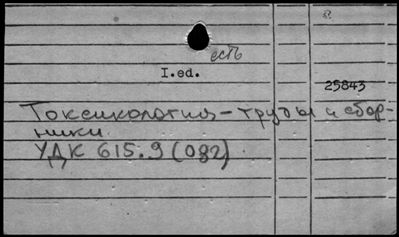 есть
I.ed.
25843
Токсикология – труды и сбор-
ники.
УДК 615.9 (082)